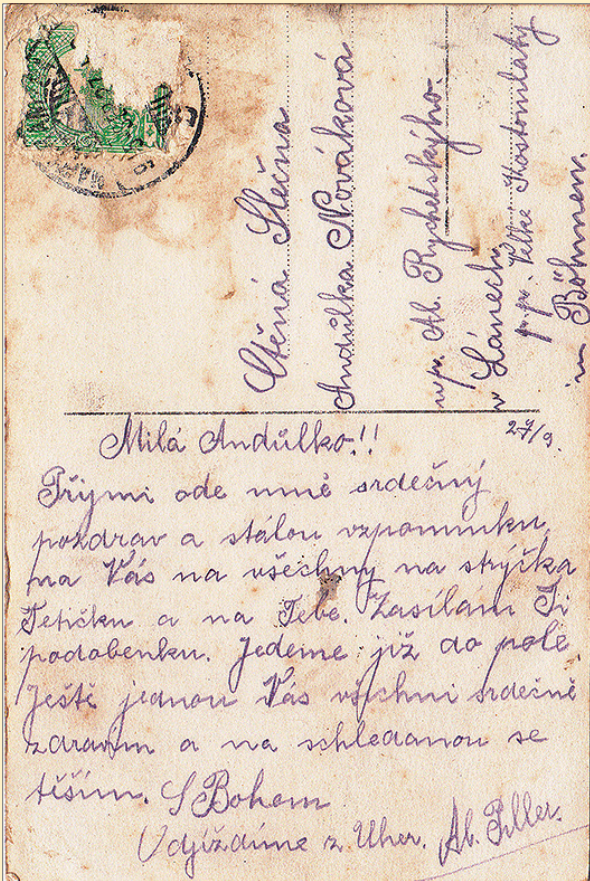 Ctěná Slečna
Andulka Nováková
u p. Al. Rychetskýho.
v Lánech.
p. p. Velke Kostomlaty
in Böhmen.
27/9.
Milá Andulko!!
Přijmi ode mně srdečný
pozdrav a stálou vzpomínku
na Vás na všechny na strýčka
Tetičku a na Tebe. Zasílám Ti
podobenku. Jedeme již do pole
Ještě jednou Vás všichni srdečně
zdravím a na schledanou se
těším. S Bohem
Odjíždíme z Uher. Al.